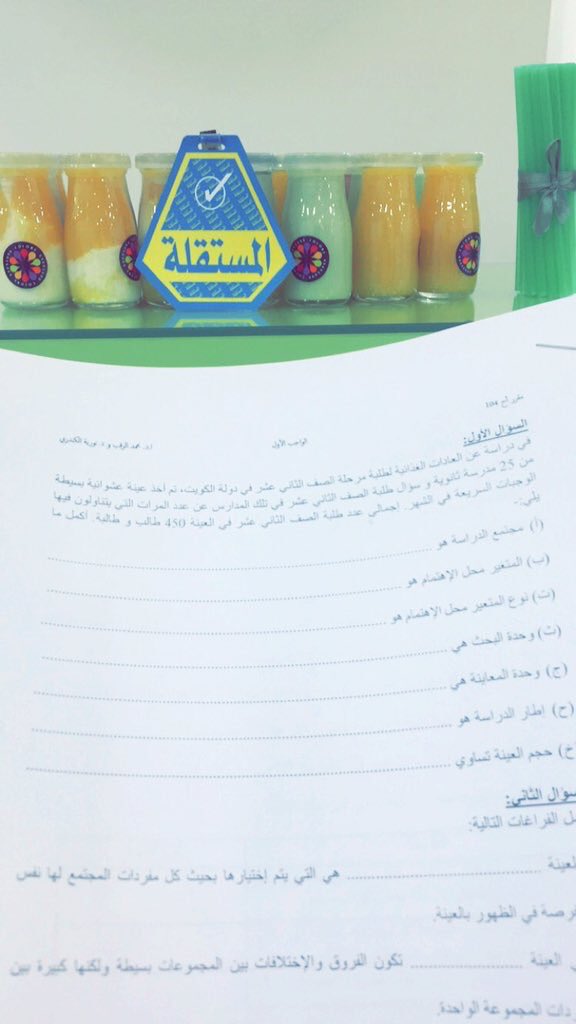 المستقلة
مقرر إح 104
الواجب الأول
السؤال الأول:
في دراسة عن العادات الغذائية لطلبة مرحلة الصف الثاني عشر في دولة الكويت، تم أخذ عينة عشوائية بسيطة
من 25 مدرسة ثانوية و سؤال طلبة الصف الثاني عشر في تلك المدارس عن عدد المرات التي يتناولون فيها
الوجبات السريعة في الشهر. إجمالي عدد طلبة الصف الثاني عشر في العينة 450 طالب و طالبة. أكمل ما
يلي:-
(أ) مجتمع الدراسة هو ........................................
(ب) المتغير محل الإهتمام هو ........................................
(ت) نوع المتغير محل الإهتمام هو ........................................
(ث) وحدة البحث هي ........................................
(ج) وحدة المعاينة هي ........................................
(ح) إطار الدراسة هو ........................................
خ) حجم العينة تساوي ........................................
سؤال الثاني:
ل الفراغات التالية:
لعينة ........................ هي التي يتم إختيارها بحيث كل مفردات المجتمع لها نفس
فرصة في الظهور بالعينة.
ي العينة ................ تكون الفروق والإختلافات بين المجموعات بسيطة ولكنها كبيرة بين
ردات المجموعة الواحدة.